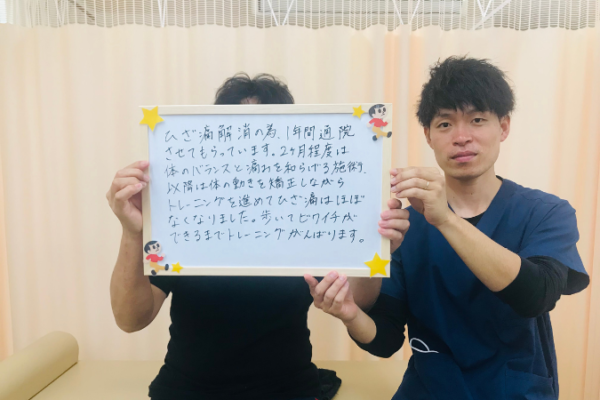 ひざ痛解消の為、1年間通院
させてもらっています。2ヶ月程度は
体のバランスと痛みを和らげる施術、
以降は体の動きを矯正しながら
トレーニングを進めてひざ痛はほぼ
なくなりました。歩いてビワイチが
できるまでトレーニングがんばります。